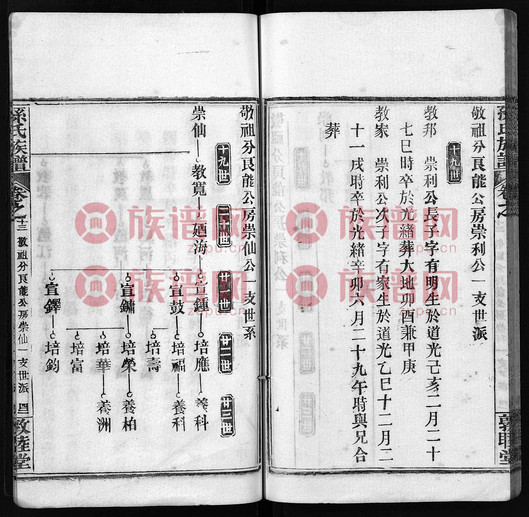 敬祖分良能公房崇利公一支世派
十九世
教邦 崇利公長子字有明生於道光己亥二月二十
七巳時卒於光緒 葬大地卯酉兼甲庚
教家 崇利公次子字有家生於道光乙巳十二月二
十一戌時卒於光緒辛卯六月二十九午時與兄合
葬
敦睦堂
敬祖分良能公房崇仙公一支世系
十九世 二十世 廿一世 廿二世 廿三世
崇仙 教寬 廼海 宣鍾 培應 養科
宣鼓 培福 養科
培壽
宣鏞 培榮 養柏
培華 養洲
培富
宣鐸 培鈞
孫氏族譜
卷之十三 敬祖分良能公房崇仙一支世派
敦睦堂
族譜网
zupu.cn